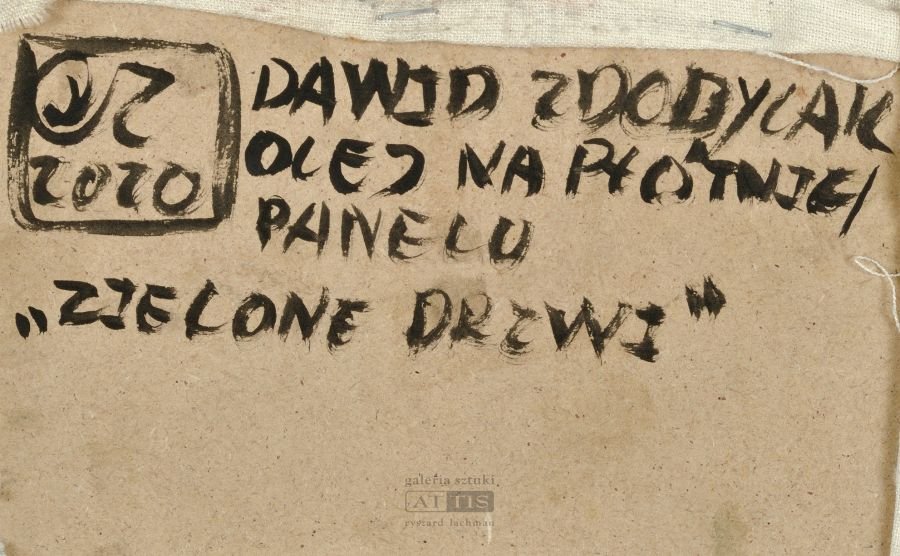 DZ
2020
DAWID ZDOBYLAK
OLEJ NA PŁÓTNIE/
PANELU
„ZIELONE DRZWI”
galeria sztuki
ATTIS
ryszard lachman